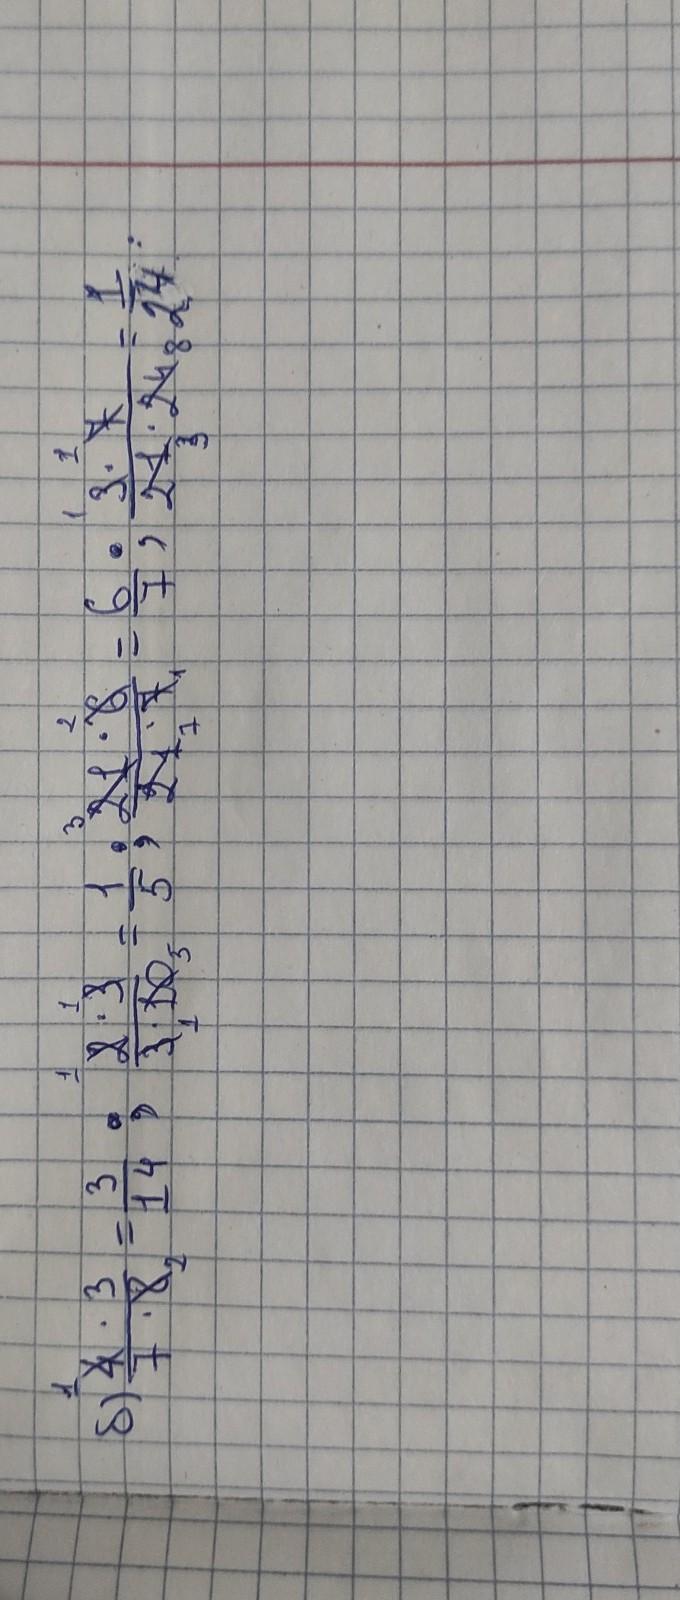 б) (4 · 3)/(7 · 8) = 3/14 ; (2 · 3)/(3 · 10) = 1/5 ; (21 · 6)/(21 · 7) = 6/7 ; (3 · 7)/(21 · 24) = 1/24 .